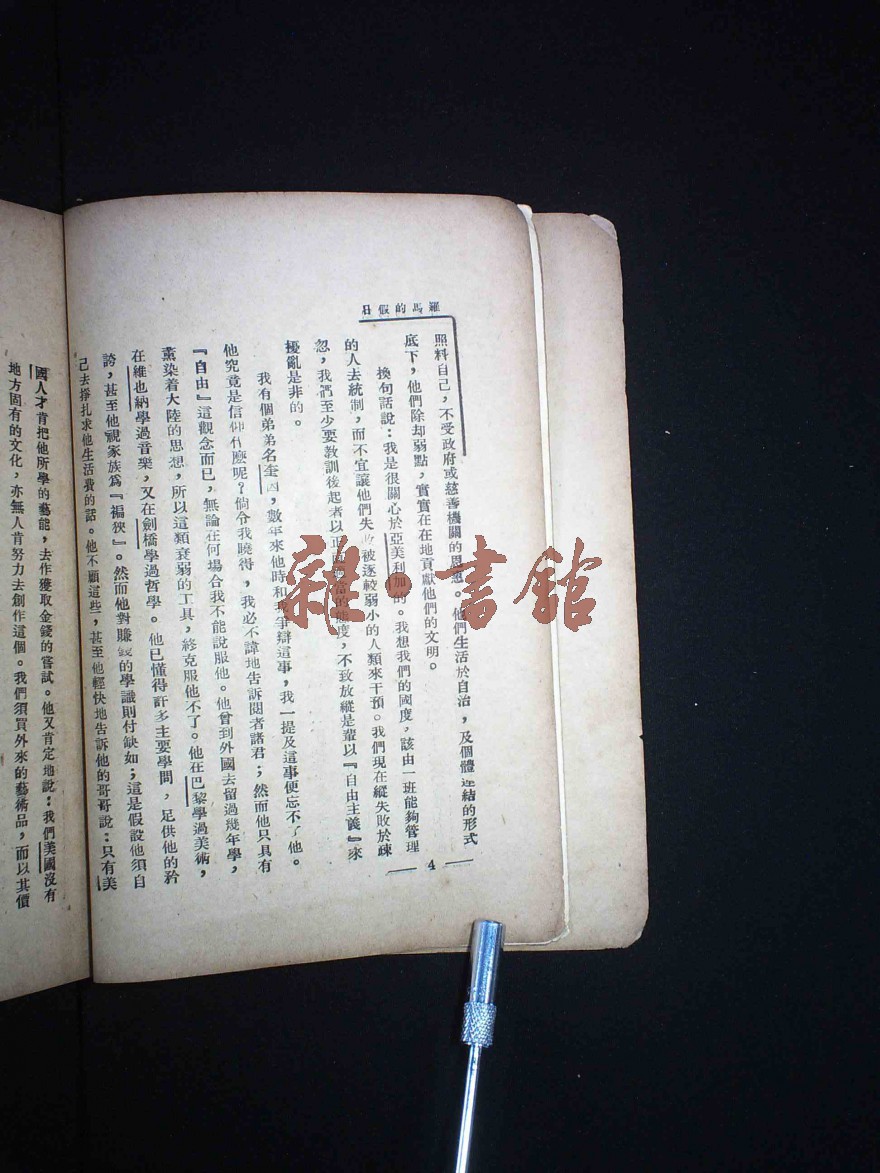 羅馬的假日
照料自己，不受政府或慈善機關的恩惠。他們生活於自治，及個體連結的形式
底下，他們除却弱點，實實在在地貢獻他們的文明。
換句話說：我是很關心於亞美利加的。我想我們的國度，該由一班能夠管理
的人去統制，而不宜讓他們失敗被逐較弱小的人類來干預。我們現在縱失敗於疎
忽，我們至少要教訓後起者以正的態度，不致放縱是輩以『自由主義』來
擾亂是非的。
我有個弟弟名奎，數年來他時和我爭辯這事，我一提及這事便忘不了他。
他究竟是信仰什麽呢？倘令我曉得，我必不諱地告訴閱者諸君；然而他只具有
『自由』這觀念而已，無論在何場合我不能說服他。他曾到外國去留過幾年學，
薰染着大陸的思想，所以這類衰弱的工具，終克服他不了。他在巴黎學過美術，
在維也納學過音樂，又在劍橋學過哲學。他已懂得許多主要學問，足供他的矜
誇，甚至他視家族爲『褊狹』。然而他對賺錢的學識則付缺如；這是假設他須自
己去掙扎求他生活費的話。他不願這些，甚至他輕快地告訴他的哥哥說：只有美
國人才肯把他所學的藝能，去作獲取金錢的嘗試。他又肯定地說：我們美國沒有
地方固有的文化，亦無人肯努力去創作這個。我們須買外來的藝術品，而以其價
4
雜·書館